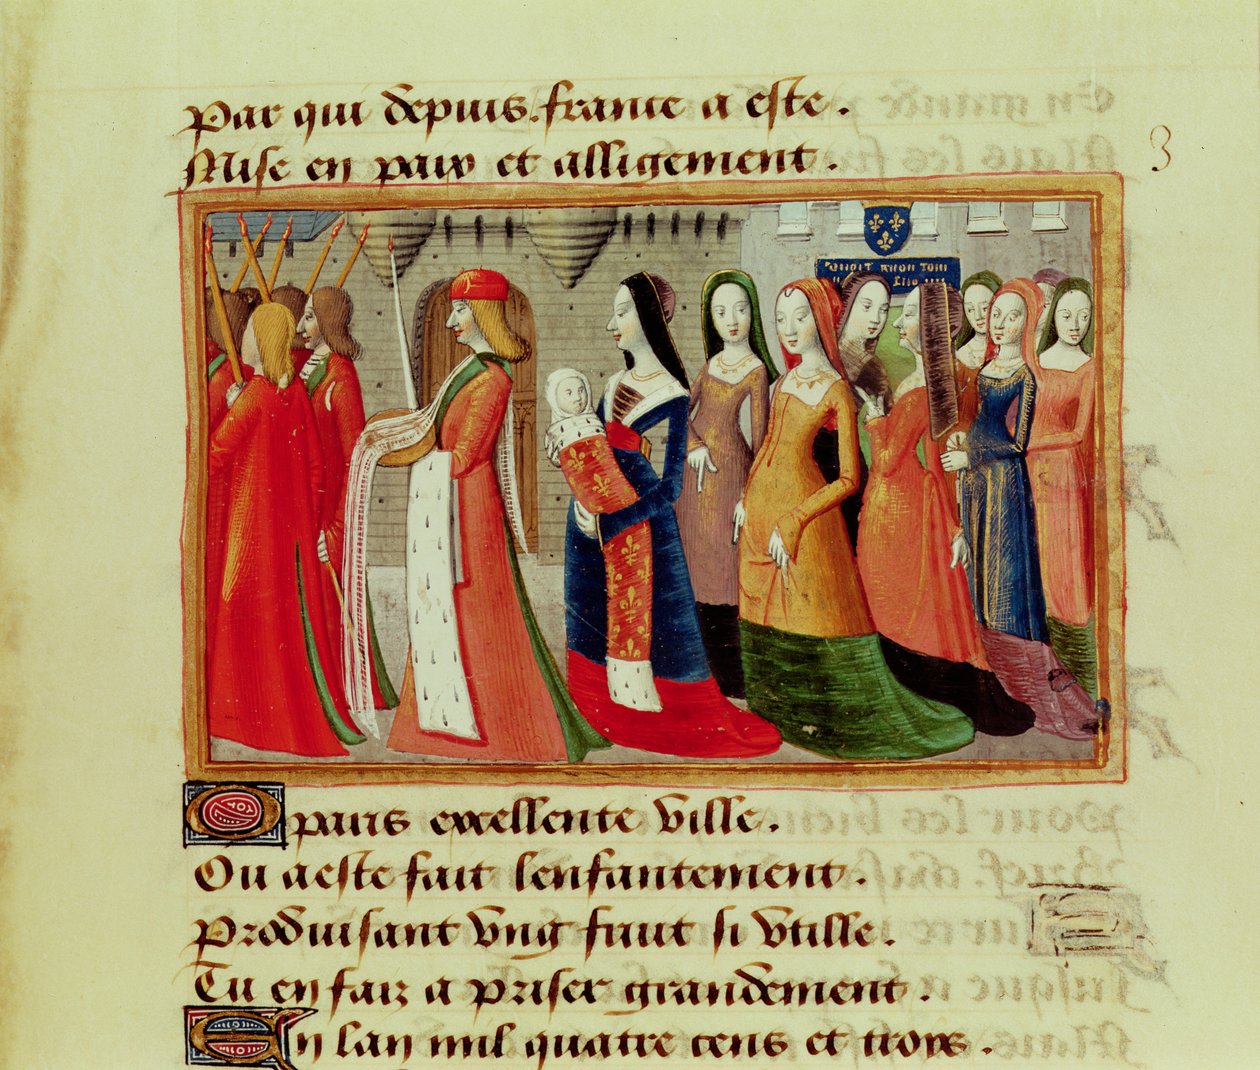 Par qui depuis france a este.
Mise en paix et alligement.
3
O paris exellente ville.
Ou a este fait lenfantement.
Produisant vng fruit si vtille.
Tu en faiz a priser grandement.
En lan mil quatre cens et troys.